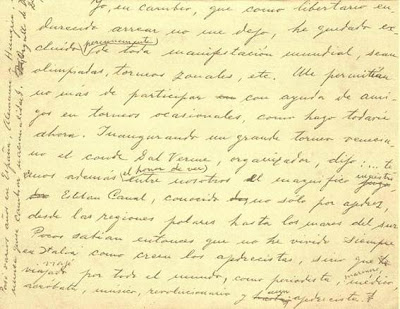 Yo, en cambio, que como libertario en-
durecido arrear no me dejo, he quedado ex-
cluido perennemente, de toda manifestación mundial, sean
olimpiadas, torneos zonales, etc. Me permitían
no más de participar con ayuda de ami-
gos en torneos ocasionales, como hago todavía
ahora. Inaugurando un grande torneo venecia-
no el conde Dal Verme, organizador, dijo:... te-
nemos además el honor de ver entre nosotros el magnífico
Esteban Canal, conocido no sólo por ajedrez,
desde las regiones polares hasta los mares del sur.
Pocos sabían entonces que no he vivido siempre
en Italia como creen los ajedrecistas, sino que he
viajado por todo el mundo, como periodista, marino, médico,
acróbata, músico, revolucionario y ajedrecista.
Pasé varios años en España, Alemania, Hungría